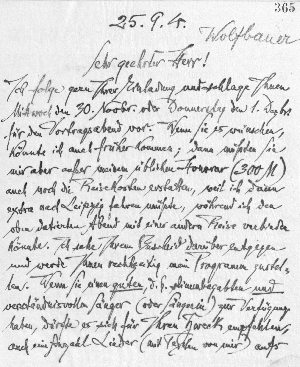 365
25. 9. 4
Wolfbauer
Sehr geehrter Herr!
Ich folge gern Ihrer Einladung und schlage Ihnen
Mittwoch den 30. Novbr. oder Donnerstag den 1. Dezbr.
für den Vortragsabend vor. Wenn Sie es wünschen,
könnte ich auch früher kommen; dann müßten Sie
mir aber außer meinem üblichen Honorar (300 M)
auch noch die Reisekosten erstatten, weil ich dann
extra nach Leipzig fahren müßte, während ich den
oben datierten Abend mit einer andern Reise verbinden
könnte. Ich sehe Ihrem Bescheid darüber entgegen
und werde Ihnen rechtzeitig mein Programm zustel-
len. Wenn Sie einen guten, d. h. stimmbegabten und
verständnisvollen Sänger (oder Sängerin) zur Verfügung
haben, dürfte es sich für Ihren Zweck empfehlen,
auch ein Lieder (mit Texten von mir) aufs